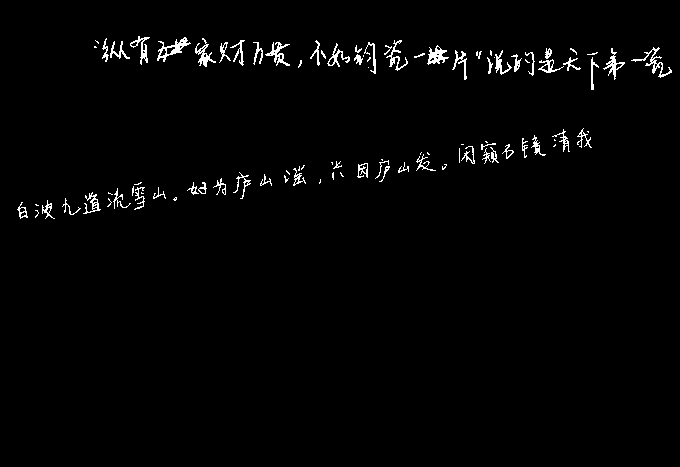 “纵有家财万贯，不如钧瓷一片”说的是天下第一瓷
白波九道流雪山。好为庐山谣，兴因庐山发。闲窥石镜清我